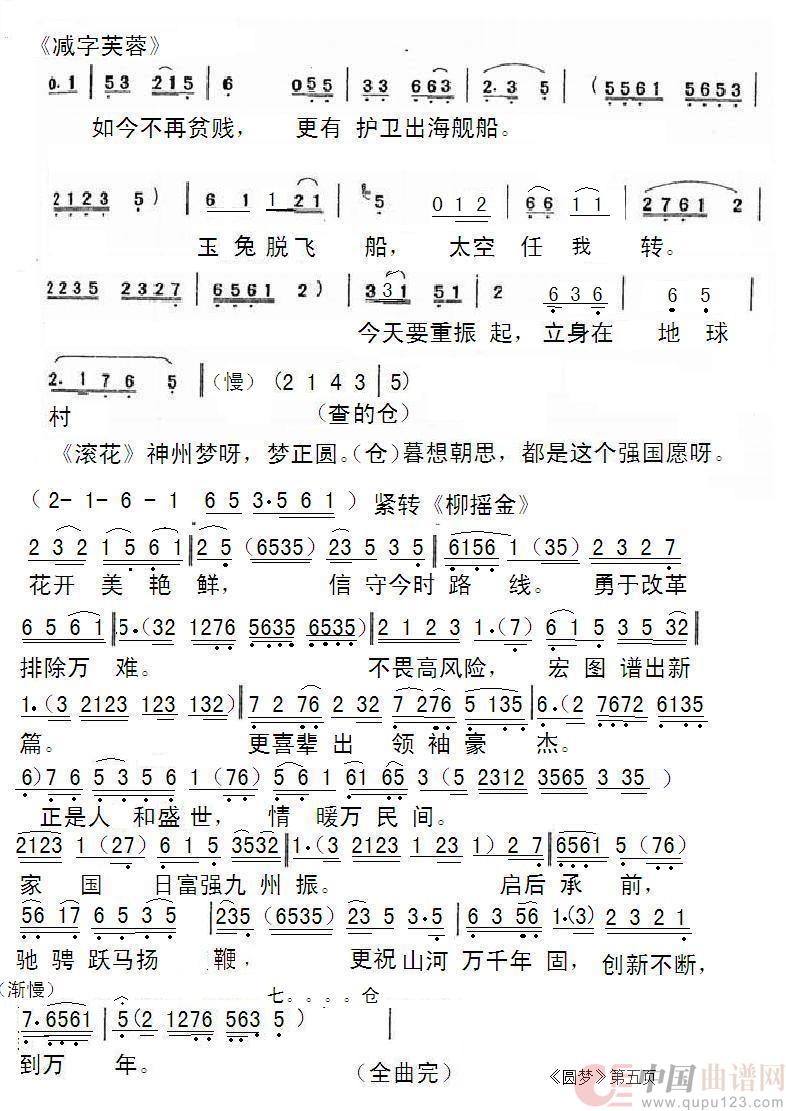 《减字芙蓉》
0.1 | 53 215 | 6 055 | 33 663 | 2.3 5 | (5561 5653
如今不再贫贱， 更有 护卫出海舰船。
2123 5) | 6 1 1 21 | 5 0 1 2 | 66 11 | 2761 2 |
玉兔脱飞 船， 太空 任 我 转。
2235 2327 | 6561 2) | 331 51 | 636 | 6 5
今天要重振 起，立身在 地 球
2.176 5 || (慢) (2 1 4 3 | 5)
村 （查的仓）
《滚花》神州梦呀，梦正圆。（仓）暮想朝思，都是这个强国愿呀。
(2- 1- 6- 1 6 5 3.5 6 1 ) 紧转《柳摇金》
2 3 2 1 5 6 1 || 2 5 (6535) 23 5 3 5 || 6156 1 (35) 2 3 2 7
花开 美 艳 鲜， 信 守今时 路 线。 勇于改革
6 5 6 1 || 5.(32 1276 5635 6535) || 2 1 2 3 1.(7) 6 1 5 3 5 32
排除万 难。 不畏高风险， 宏 图 谱出新
1.(3 2123 123 132) || 7 2 76 2 32 7 276 5 135 || 6.(2 7672 6135
篇。 更喜辈 出 领 袖 豪 杰。
6) 7 6 5 3 5 6 1 (76) || 5 6 1 61 65 3 (5 2312 3565 3 35 )
正是人 和盛 世， 情 暖万 民 间。
2123 1 (27) 6 1 5 3532 || 1.(3 2312 1 23 1) 2 7 || 6561 5 (76)
家 国 日富强九 州 振。 启后 承 前，
56 17 6 5 3 5 | 235 (6535) 23 5 3.5 || 6 3 56 1.(3) 2 3 2 1
驰 骋 跃马扬 鞭， 更祝 山河 万千年 固，创新不断，
（渐慢） 七。。。。仓
7.6561 | 5 (2 1276 563 5 )
到万 年。 （全曲完） 《圆梦》第五页
中国曲谱网
www.qupu123.com